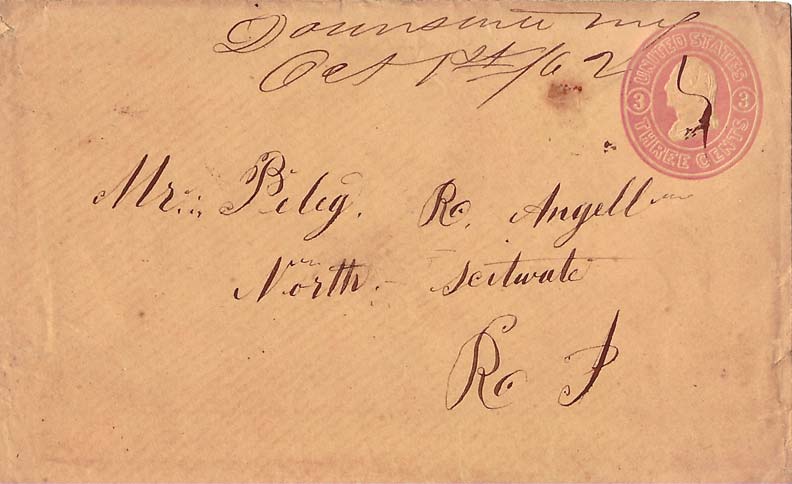 Downsville NY
Oct 1st/62
UNITED STATES
3 3
THREE CENTS
Mr. Peleg. R. Angell
North. Scituate
R I